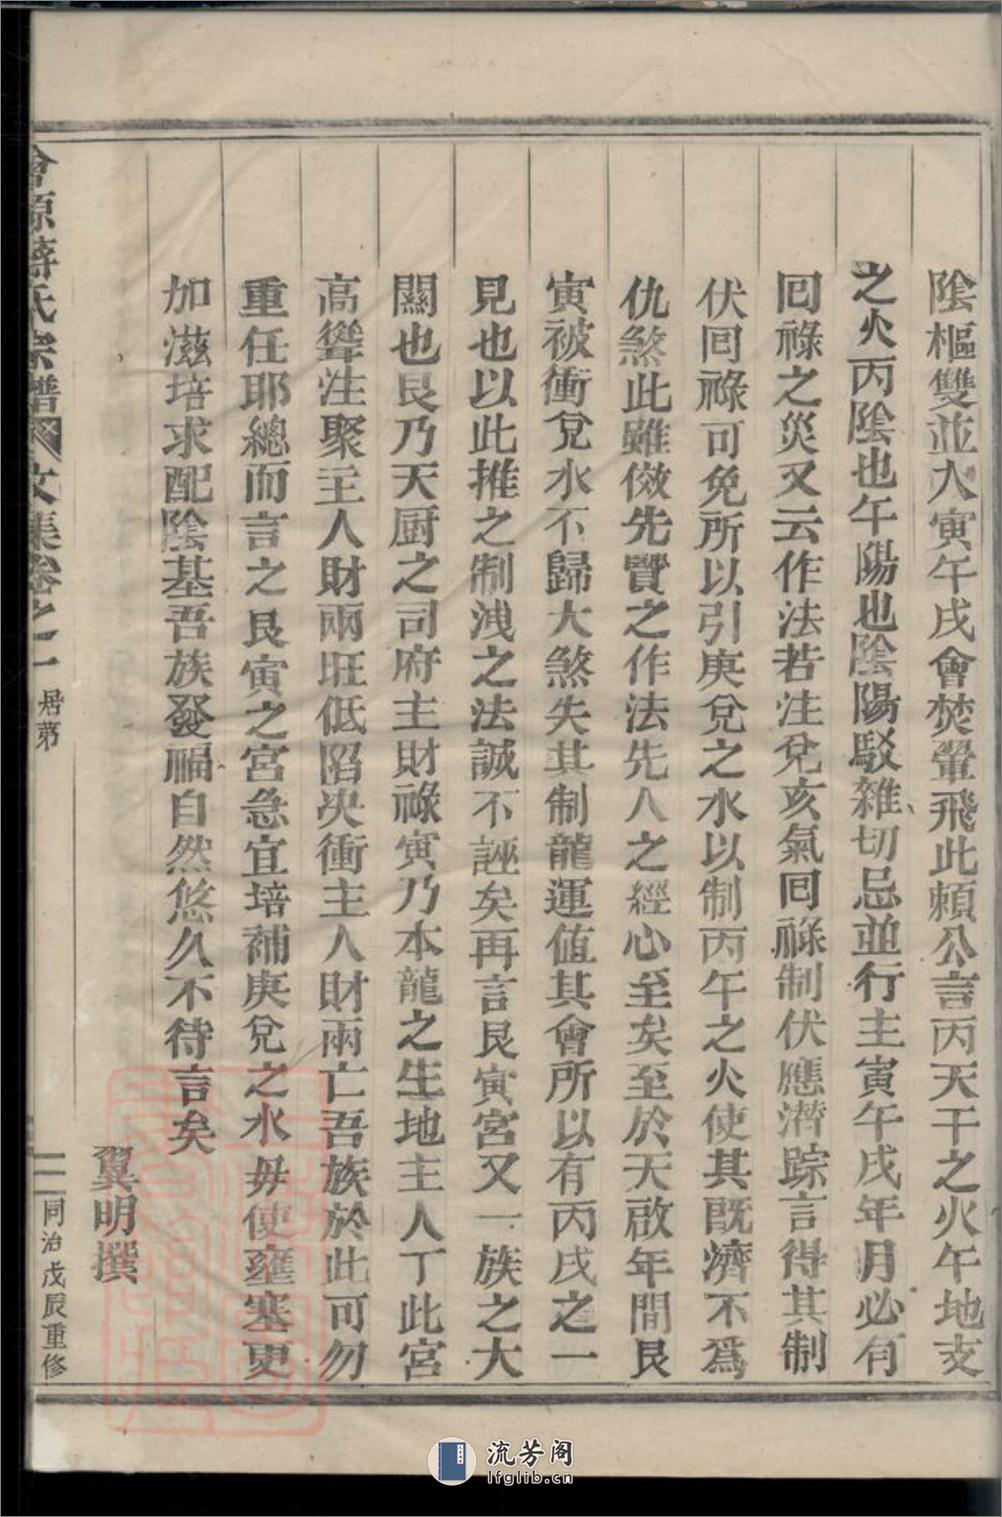 陰樞雙並入寅午戌會焚翬飛此賴公言丙天干之火午地支
之火丙陰也午陽也陰陽駁雜切忌並行主寅午戌年月必有
囘祿之災又云作法若注兌亥氣囘祿制伏應潜踪言得其制
伏囘祿可免所以引庚兌之水以制丙午之火使其既濟不爲
仇煞此雖傚先賢之作法先人之經心至矣至於天啟年間艮
寅被衝兌水不歸大煞失其制龍運值其會所以有丙戌之一
見也以此推之制洩之法誠不誣矣再言艮寅宮又一族之大
關也艮乃天厨之司府主財祿寅乃本龍之生地主人丁此宮
高聳注聚主人財兩旺低陷決衝主人財兩亡吾族於此可勿
重任耶總而言之艮寅之宮急宜培補庚兌之水毋使壅塞更
加滋培求配陰基吾族發福自然悠久不待言矣
翼明撰
氏宗譜 文集卷之一 居第 二 同治戊辰重修
流芳阁
lfglib.cn